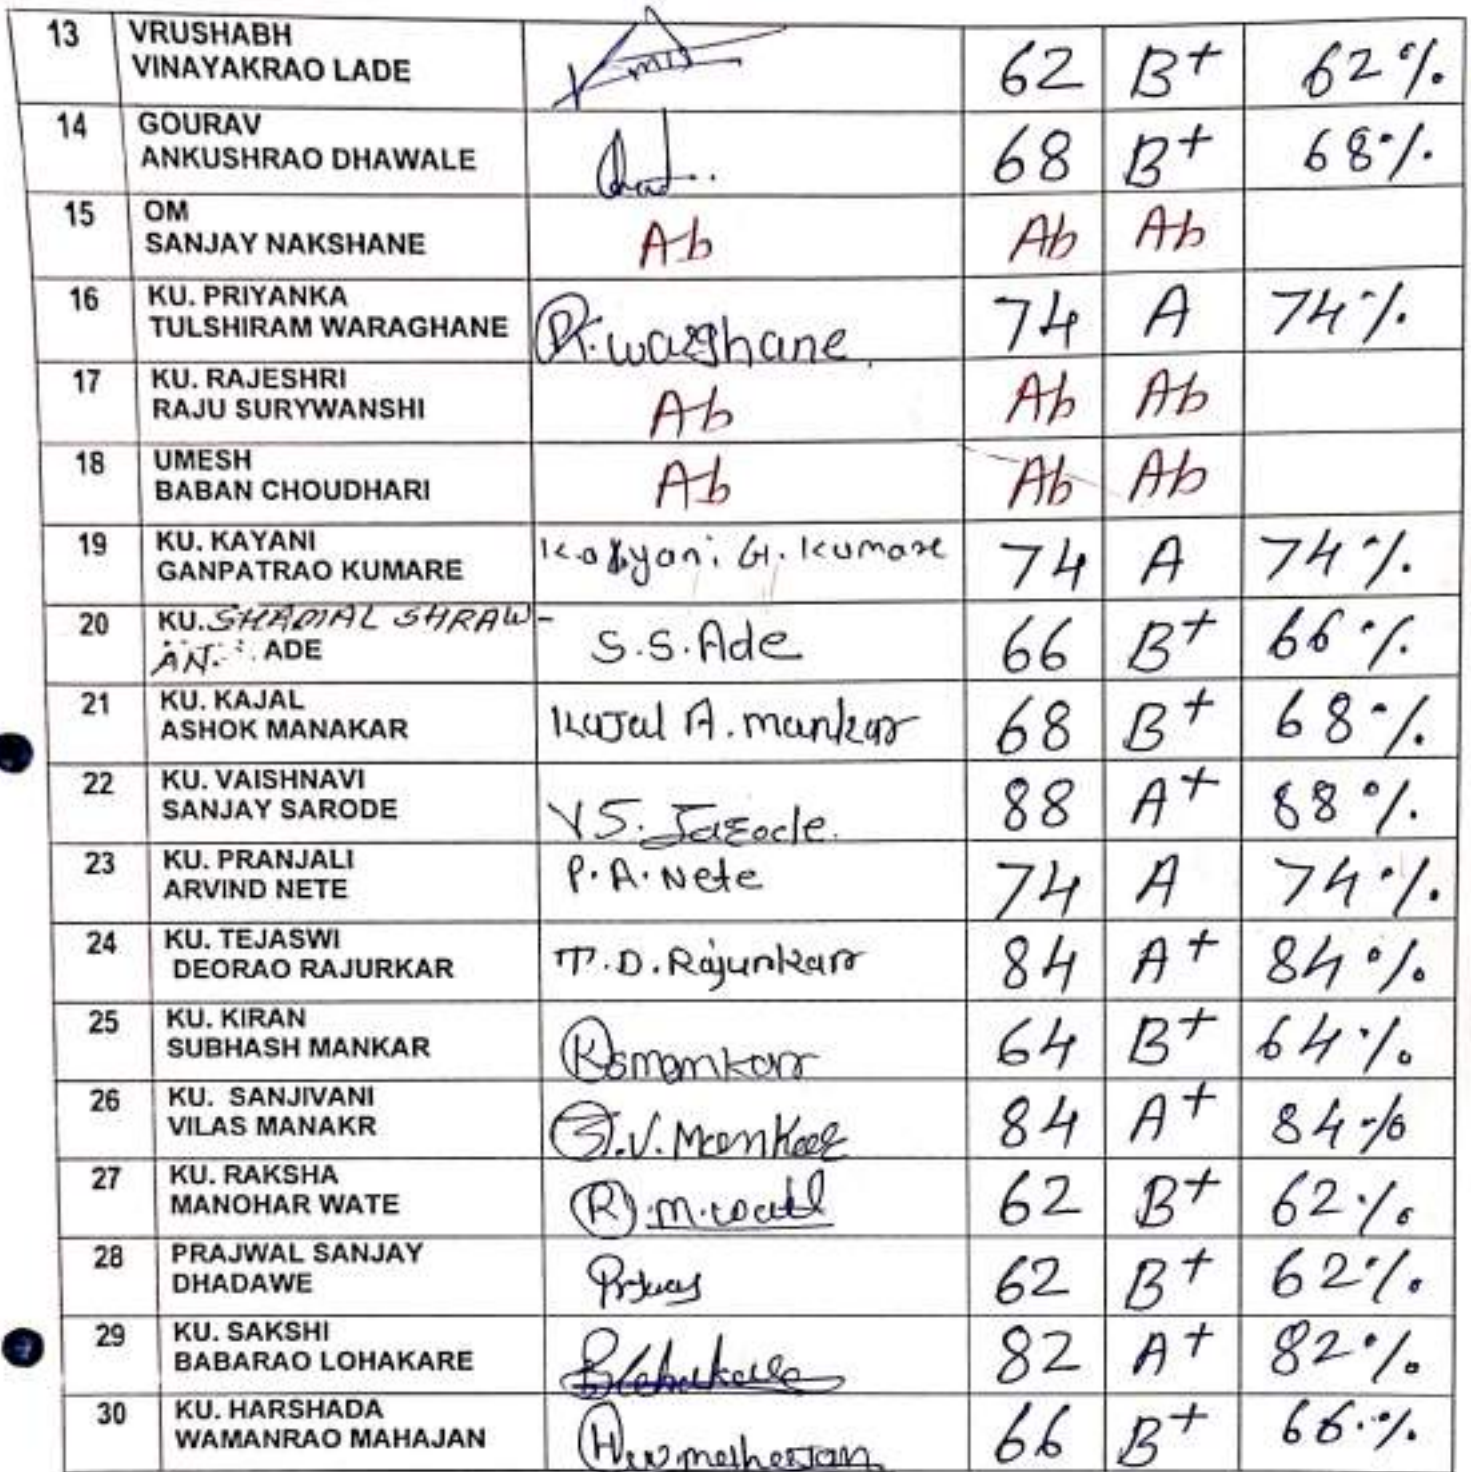 13 VRUSHABH
VINAYAKRAO LADE 62 B+ 62%
14 GOURAV
ANKUSHRAO DHAWALE 68 B+ 68%
15 OM
SANJAY NAKSHANE Ab Ab Ab
16 KU. PRIYANKA
TULSHIRAM WARAGHANE 74 A 74%
17 KU. RAJESHRI
RAJU SURYWANSHI Ab Ab Ab
18 UMESH
BABAN CHOUDHARI Ab Ab Ab
19 KU. KAYANI
GANPATRAO KUMARE Kalyani G. Kumare 74 A 74%
20 KU. SHAMAL SHRAW-
AN. ADE S.S.Ade 66 B+ 66%
21 KU. KAJAL
ASHOK MANAKAR Kajal A. mankar 68 B+ 68%
22 KU. VAISHNAVI
SANJAY SARODE V S. Sarode. 88 A+ 88%
23 KU. PRANJALI
ARVIND NETE P.A.Nete 74 A 74%
24 KU. TEJASWI
DEORAO RAJURKAR T.D.Rajurkar 84 A+ 84%
25 KU. KIRAN
SUBHASH MANKAR 64 B+ 64%
26 KU. SANJIVANI
VILAS MANAKR S.V. Mankar 84 A+ 84%
27 KU. RAKSHA
MANOHAR WATE R.M.wate 62 B+ 62%
28 PRAJWAL SANJAY
DHADAWE 62 B+ 62%
29 KU. SAKSHI
BABARAO LOHAKARE 82 A+ 82%
30 KU. HARSHADA
WAMANRAO MAHAJAN 66 B+ 66%